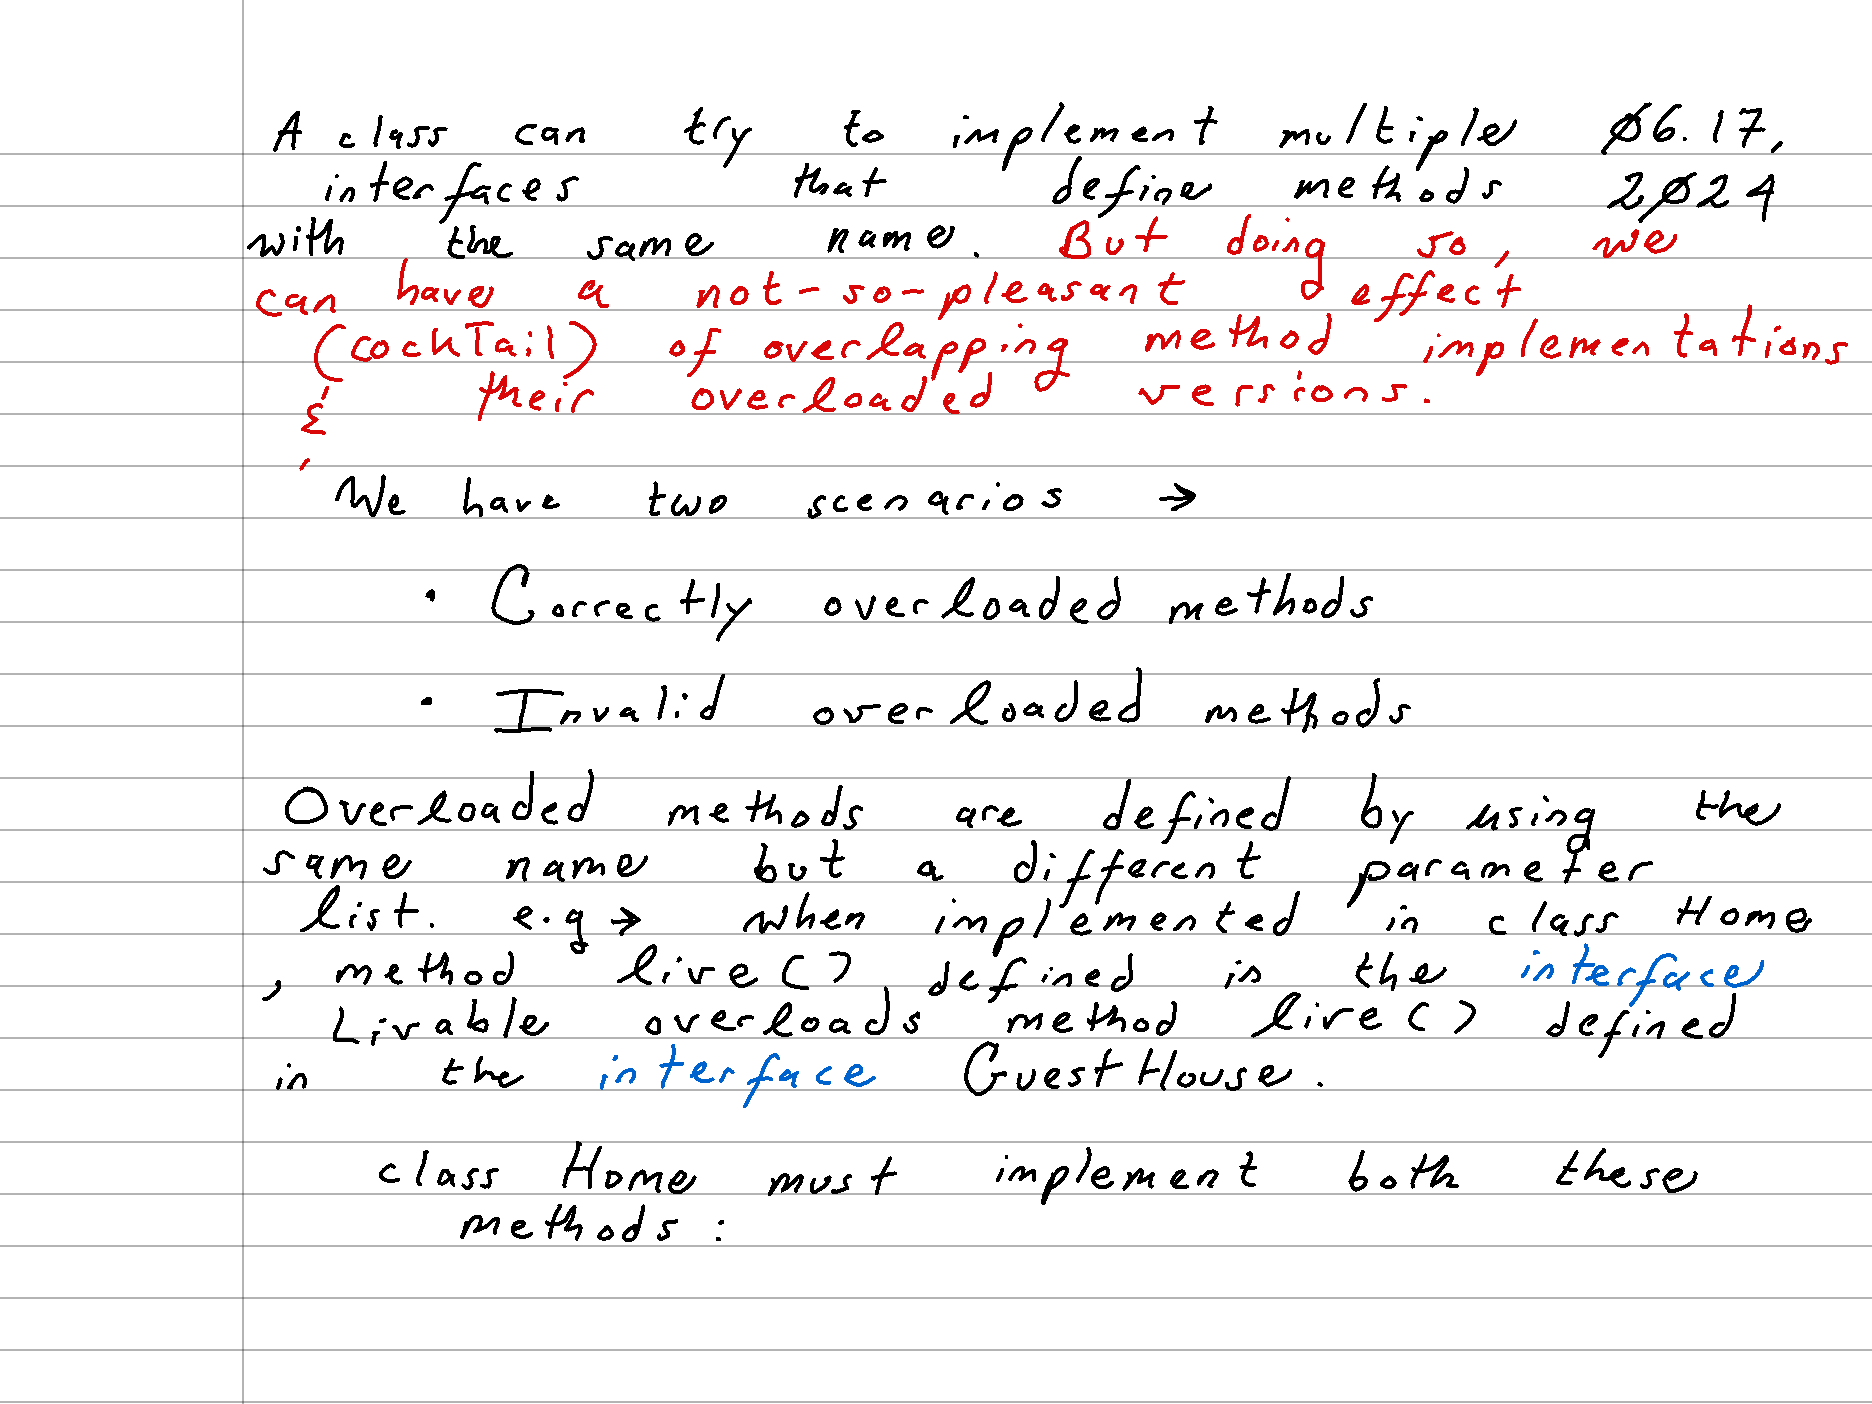 A class can try to implement multiple 06.17,
interfaces that define methods 2024
with the same name. But doing so, we
can have a not-so-pleasant effect
(cockTail) of overlapping method implementations
& their overloaded versions.
We have two scenarios →
• Correctly overloaded methods
• Invalid overloaded methods
Overloaded methods are defined by using the
same name but a different parameter
list. e.g → when implemented in class Home
, method live() defined in the interface
Livable overloads method live() defined
in the interface GuestHouse.
class Home must implement both these
methods :